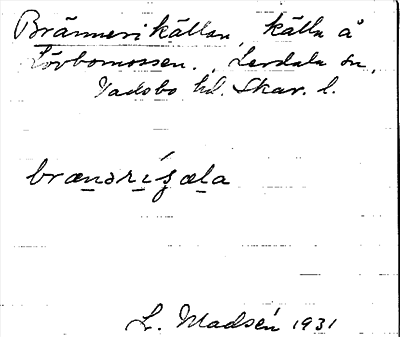 Brännerikällan, källa å
Lövbomossen., Lerdala sn,
Vadsbo hd. Skar. l.
brænəriʂæla
L. Madsén 1931